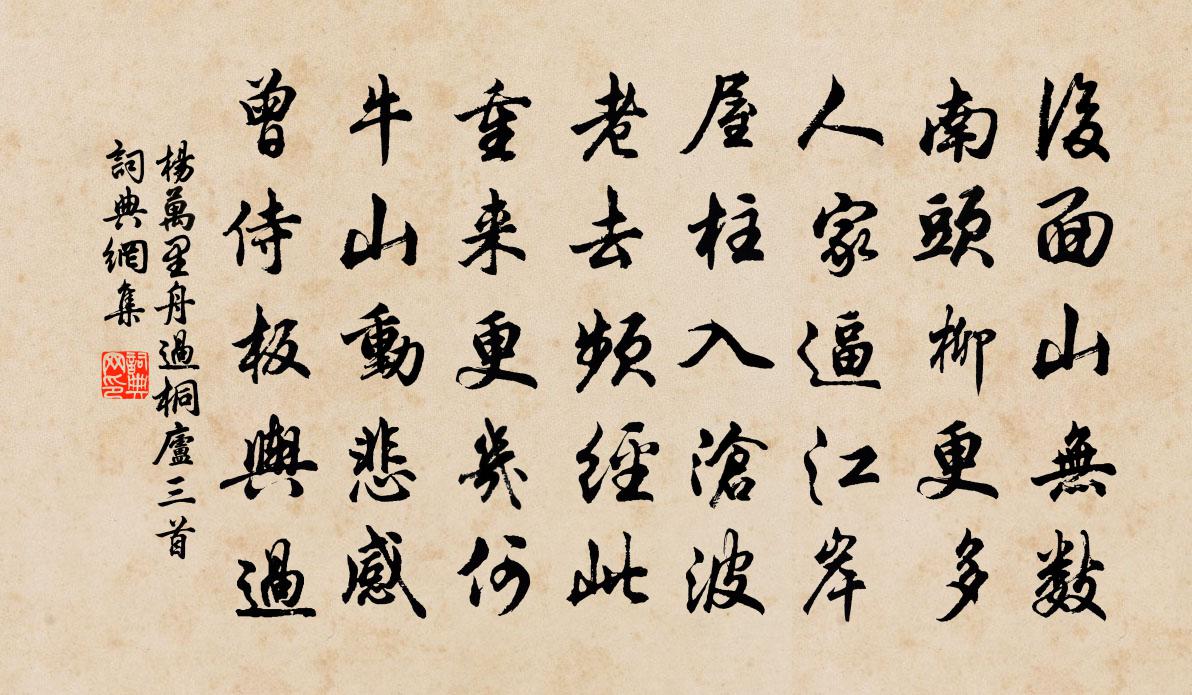 後面山無數
南頭柳更多
人家逼江岸
屋柱入滄波
老去頻經此
重来更幾何
牛山動悲感
曾侍板輿過
楊萬里舟過桐廬三首
詞典網集
詞典网印